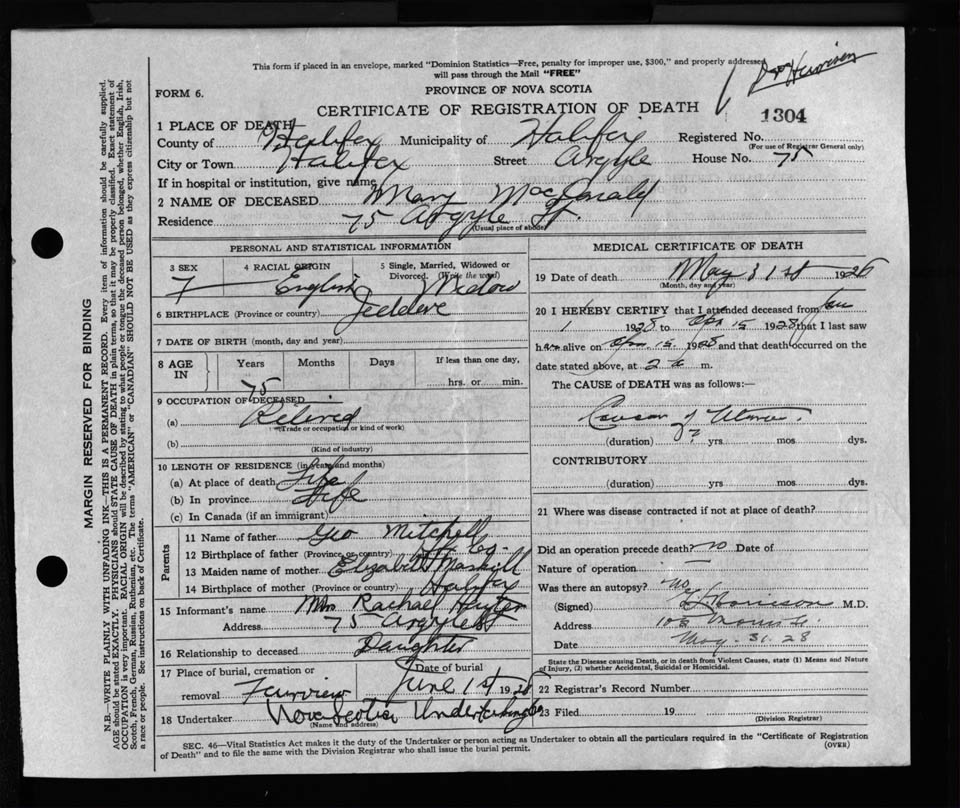 This form if placed in an envelope, marked "Dominion Statistics—Free, penalty for improper use, $300," and properly addressed,
will pass through the Mail "FREE"
FORM 6.
PROVINCE OF NOVA SCOTIA
CERTIFICATE OF REGISTRATION OF DEATH
1304
1 PLACE OF DEATH
County of Halifax Municipality of Halifax Registered No.
(For use of Registrar General only)
City or Town Halifax Street Argyle House No. 75
If in hospital or institution, give name
2 NAME OF DECEASED Mary MacDonald
Residence 75 Argyle St.
(Usual place of abode)
PERSONAL AND STATISTICAL INFORMATION
3 SEX 4 RACIAL ORIGIN 5 Single, Married, Widowed or
Divorced. (Write the word)
F English Widow
6 BIRTHPLACE (Province or country) Jeddore
7 DATE OF BIRTH (month, day and year)
8 AGE IN Years Months Days If less than one day,
75 hrs. or min.
9 OCCUPATION OF DECEASED
(a) Retired
(Trade or occupation or kind of work)
(b)
(Kind of industry)
10 LENGTH OF RESIDENCE (in years and months)
(a) At place of death Life
(b) In province Life
(c) In Canada (if an immigrant)
Parents
11 Name of father Geo Mitchell
12 Birthplace of father (Province or country)
13 Maiden name of mother Elizabeth Maskill
14 Birthplace of mother (Province or country) Halifax
15 Informant's name Mrs Rachael
Address 75 Argyle St
16 Relationship to deceased Daughter
17 Place of burial, cremation or Date of burial
removal Fairview June 1st 1928
18 Undertaker Nova Scotia Undertaking Co
(Name and address)
MEDICAL CERTIFICATE OF DEATH
19 Date of death May 31st 1928
(Month, day and year)
20 I HEREBY CERTIFY that I attended deceased from Jan
1 1928 to Apr 15 1928 that I last saw
her alive on Apr 15 1928 and that death occurred on the
date stated above, at 2 a m.
The CAUSE of DEATH was as follows:—
of Uterus
(duration) ? yrs. mos. dys.
CONTRIBUTORY
(duration) yrs. mos. dys.
21 Where was disease contracted if not at place of death?
Did an operation precede death? no Date of
Nature of operation —
Was there an autopsy? no
(Signed) Morrison M.D.
Address Morris St.
Date May 31. 28
State the Disease causing Death, or in death from Violent Causes, state (1) Means and Nature
of Injury, (2) whether Accidental, Suicidal or Homicidal.
22 Registrar's Record Number
23 Filed 19
(Division Registrar)
SEC. 46—Vital Statistics Act makes it the duty of the Undertaker or person acting as Undertaker to obtain all the particulars required in the "Certificate of Registration
of Death" and to file the same with the Division Registrar who shall issue the burial permit.
(OVER)
MARGIN RESERVED FOR BINDING
N.B.—WRITE PLAINLY WITH UNFADING INK—THIS IS A PERMANENT RECORD. Every item of information should be carefully supplied.
AGE should be stated EXACTLY. PHYSICIANS should STATE CAUSE OF DEATH in plain terms, so that it may be properly classified. Exact statement of
OCCUPATION is very important. RACIAL ORIGIN will be described by stating to what people or tongue the deceased person belonged, whether English, Irish,
Scotch, French, German, Russian, Ruthenian, etc. The terms "AMERICAN" or "CANADIAN" SHOULD NOT BE USED as they express citizenship but not
a race or people. See instructions on back of Certificate.